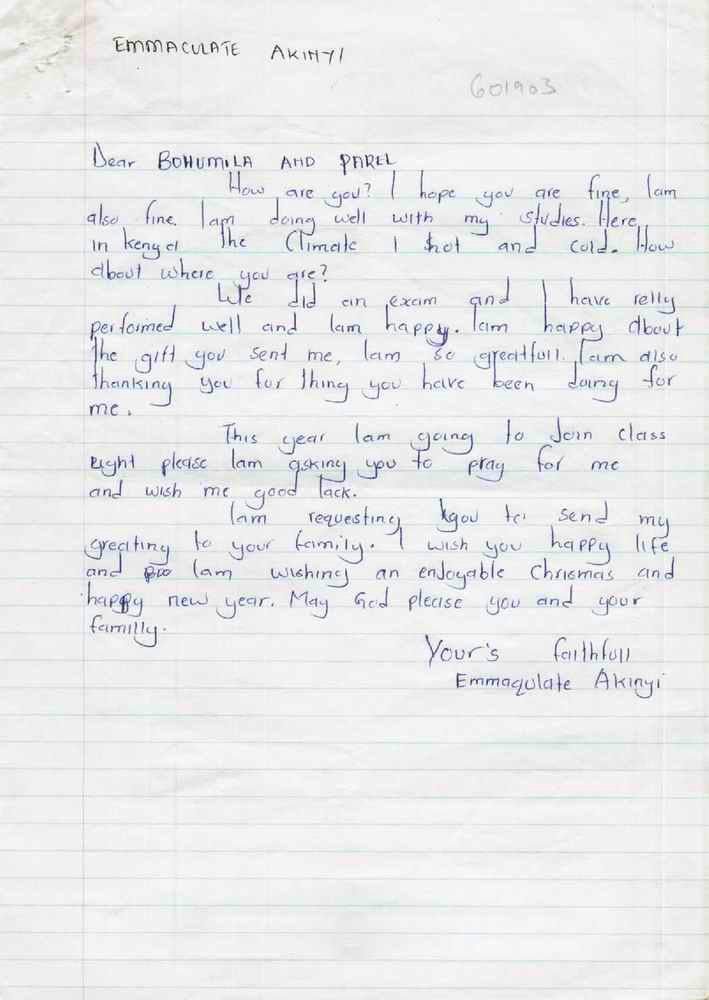 EMMACULATE AKINYI
601903
Dear BOHUMILA AND PAREL
How are you? I hope you are fine, Iam
also fine. Iam doing well with my studies. Here
in kenya the Climate I hot and cold. How
about where you are?
We did an exam and I have relly
performed well and Iam happy. Iam happy about
the gift you sent me, Iam so greatfull. Iam also
thanking you for thing you have been doing for
me.
This year Iam going to Join class
eight please Iam asking you to pray for me
and wish me good lack.
Iam requesting you to send my
greating to your family. I wish you happy life
and Iam wishing an enjoyable Chrismas and
happy new year. May God please you and your
familly.
Your's faithfull
Emmaqulate Akinyi